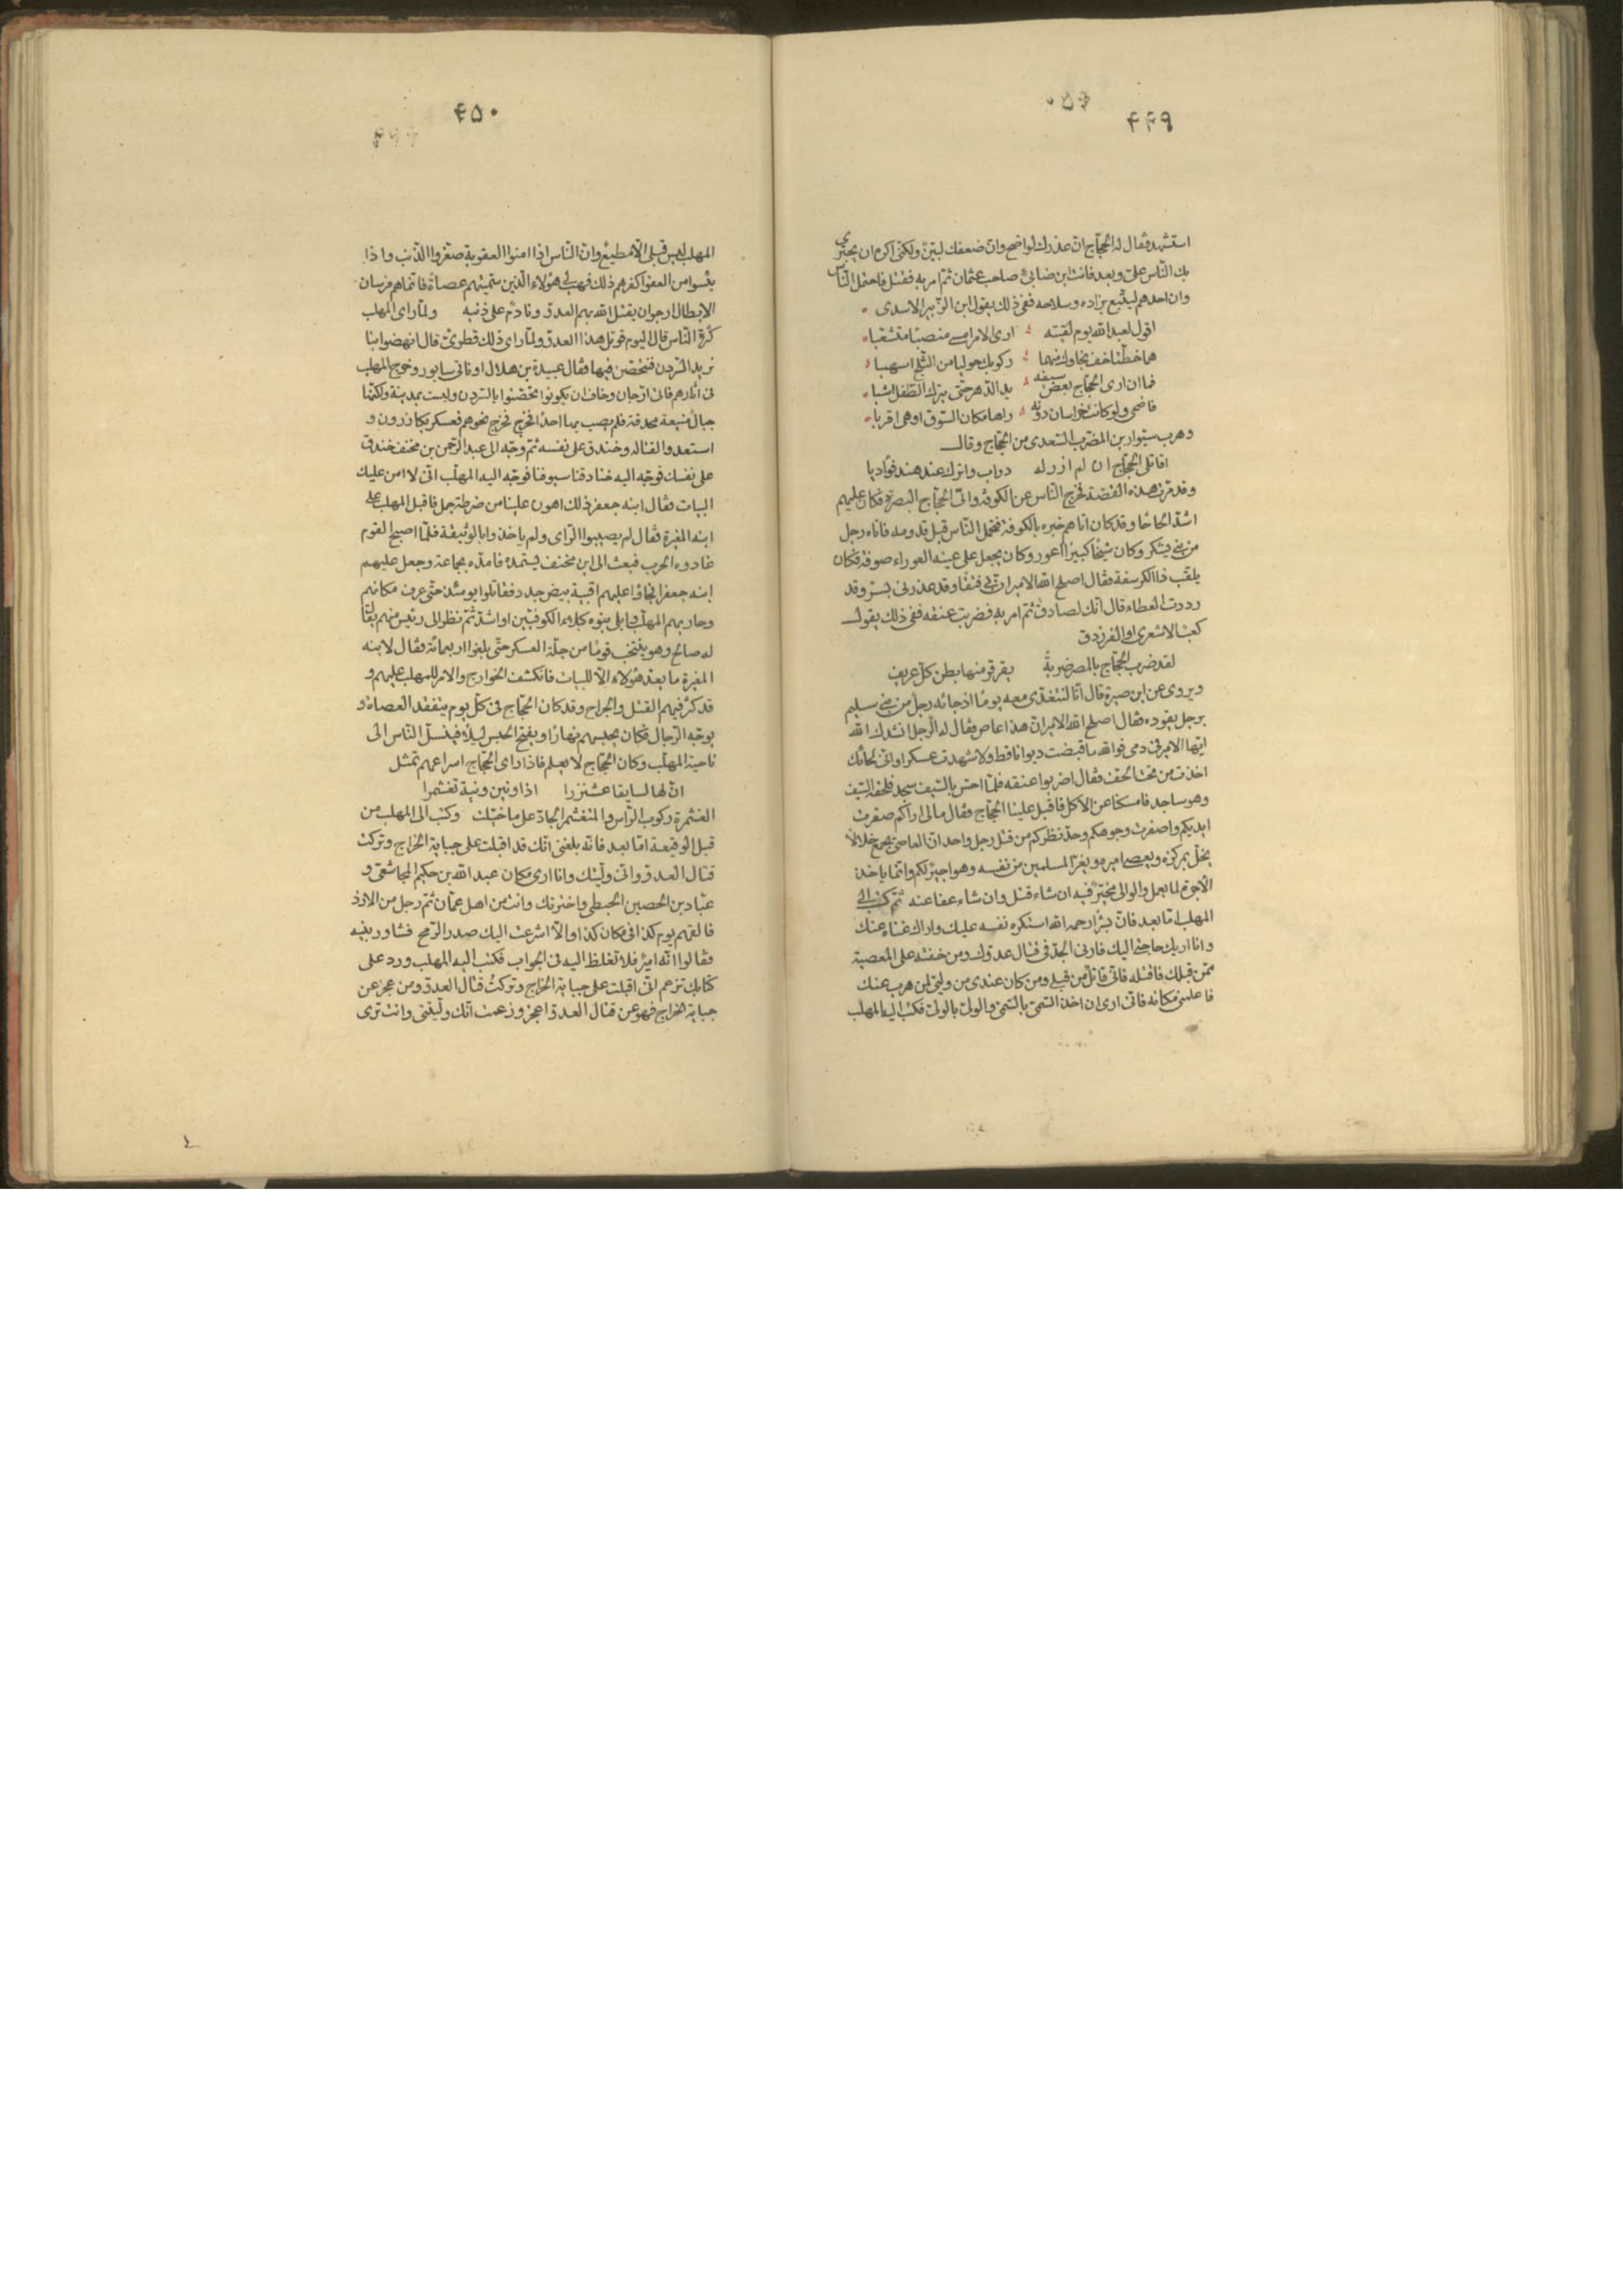 ۴۴۹
استشهد فقال له الحجّاج انّ عذرك لواضح وانّ ضعفك لبيّن ولكنّى اكره ان يجترى
بك النّاس علىّ وبعد فانت ابن ضابئ صاحب عثمان ثمّ امر به فقتل فاحتمل النّاس
وان احدهم ليتّبع بزاده وسلاحه ففى ذلك يقول ابن الزّبير الاسدى
اقول لعبد الله يوم لقيته ارى الامر امسى منصبا متشعّبا
هما خطّتا خسف نجاؤك منهما ركوبك حوليا من الثلج اشهبا
فما ان ارى الحجّاج يغمض سيفه يد الدّهر حتّى يترك الطّفل اشيبا
فاضحى ولو كانت خراسان دونه راها مكان السّوق او هى اقربا
وهرب سوّار بن المضرّب السّعدى من الحجّاج وقال
اقاتلى الحجّاج ان لم ازر له دراب واترك عند هند فؤاديا
وقد مرّت هذه القصّة فخرج النّاس عن الكوفة واتى الحجّاج البصرة فكان عليهم
اشدّ الحاحا وقد كان اتاهم خبره بالكوفة فتحمل النّاس قبل قدومه فاتاه رجل
من بنى يشكر وكان شيخا كبيرا اعور وكان يجعل على عينه العوراء صوفة فكان
يلقب ذا الكرسفة فقال اصلح الله الامير ان بى فتقا وقد عذرنى بشر وقد
رددت العطاء قال انّك لصادق ثمّ امر به فضربت عنقه ففى ذلك يقول
كعب الاشعرى او الفرزدق
لقد ضرب الحجّاج بالمصر ضربة يقرقر منها بطن كلّ عريف
ويروى عن ابن صبرة قال انّا لنتغدّى معه يوما اذ جائه رجل من بنى سليم
برجل يقوده فقال اصلح الله الامير انّ هذا عاص فقال له الرّجل انشدك الله
ايّها الامير فى دمى فوالله ما قبضت ديوانا قط ولا شهدت عسكرا وانّى لحائك
اخذت من تحت الحف فقال اضربوا عنقه فلمّا احسّ بالسّيف سجد فلحقه السّيف
وهو ساجد فامسكنا عن الاكل فاقبل علينا الحجّاج وقال مالى اراكم صفرت
ايديكم واصفرت وجوهكم وحدّ نظركم من قتل رجل واحد انّ العاصى يجمع خلالا
يخلّ بمركزه ويعصى اميره ويغرّ المسلمين من نفسه وهو اجير لكم وانّما ياخذ
الاجرة لما يعمل والوالى مخيّر فيه ان شاء قتل وان شاء عفا عنه ثمّ كتب الى
المهلب امّا بعد فانّ بشرا رحمه الله استكره نفسه عليك واراك غناه عنك
وانا اريك حاجتى اليك فارنى الجدّ فى قتال عدوّك ومن خفته على المعصية
ممّن قبلك فاقتله فانّى قاتل من قبلى ومن كان عندى من ولىّ لمن هرب عنك
فاعلمنى مكانه فانّى ارى ان اخذ السّمىّ بالسّمىّ والولىّ بالولىّ فكتب اليه المهلب
۴۵۰
المهلب ليس قبلى الّا مطيع وانّ النّاس اذا امنوا العقوبة صغّروا الذّنب واذا
يئسوا من العفو اكفرهم ذلك فهب لى هؤلاء الّذين سمّيتهم عصاة فانّماهم فرسان
الابطال ارجو ان يقتل الله بهم العدوّ ونادم على ذنبه ولمّا راى المهلب
كثرة النّاس قال اليوم قوتل هذا العدوّ ولمّا راى ذلك قطرىّ قال انهضوا بنا
نريد السّردن فنتحصّن فيها فقال عبيدة بن هلال او ناتى سابور وخرج المهلب
فى اثارهم فاتى ارّجان وخاف ان يكونوا تحصّنوا بالسّردن وليست بمدينة ولكنّها
جبال منيعة محدقة فلم يصب بها احدا فخرج فخرج نحوهم فعسكر بكازرون و
استعدوا لقتاله وخندق على نفسه ثمّ وجّه الى عبد الرّحمن بن مخنف خندق
على نفسك فوجّه اليه خنادقنا سيوفنا فوجّه اليه المهلّب انّى لا امن عليك
البيات فقال ابنه جعفر ذلك اهون علينا من ضرطة جمل فاقبل المهلب على
ابنه المغيرة فقال لم يصيبوا الرّاى ولم ياخذوا بالوثيقة فلمّا اصبح القوم
غادوه الحرب فبعث الى ابن مخنف يستمدّه فامدّه بجماعة وجعل عليهم
ابنه جعفرا فجاؤا عليهم اقبية بيض جدد فقاتلوا يومئذ حتّى عرف مكانهم
وحاربهم المهلّب وابلى بنوه كبلاء الكوفيّين او اشدّ ثمّ نظر الى رئيس منهم يقال
له صالح وهو ينتخب قوما من جلّة العسكر حتّى بلغوا اربعمائة فقال لابنه
المغيرة ما يعدّ هؤلاء الّا للبيات فانكشف الخوارج والامر للمهلب عليهم و
قد كثر فيهم القتل والجراح وقد كان الحجّاج فى كلّ يوم يتفقد العصاة و
يوجّه الرّجال فكان يحبسهم نهارا ويفتح الحبس ليلا فينسلّ النّاس الى
ناحية المهلّب وكان الحجّاج لا يعلم فاذا راى الحجّاج اسراعهم تمثل
انّ لها لسايقا عشنزرا اذا ونين ونية تغشمرا
الغشمرة ركوب الرّاس والمتغشمر الجادّ على ما خيّلت وكتب الى المهلب من
قبل الوقيعة امّا بعد فانّه بلغنى انّك قد اقبلت على جباية الخراج وتركت
قتال العدوّ وانّى ولّيتك وانا ارى مكان عبد الله بن حكيم المجاشعىّ و
عبّاد بن الحصين الحبطى واخترتك وانت من اهل عمّان ثمّ رجل من الازد
فالقهم يوم كذا فى مكان كذا والّا اشرعت اليك صدر الرّمح فشاور بنيه
فقالوا انّه امير فلا تغلظ اليه فى الجواب فكتب اليه المهلب ورد على
كتابك تزعم انّى اقبلت على جباية الخراج وتركت قتال العدوّ ومن عجز عن
جباية الخراج فهو عن قتال العدوّ اعجز وزعمت انّك ولّيتنى وانت ترى